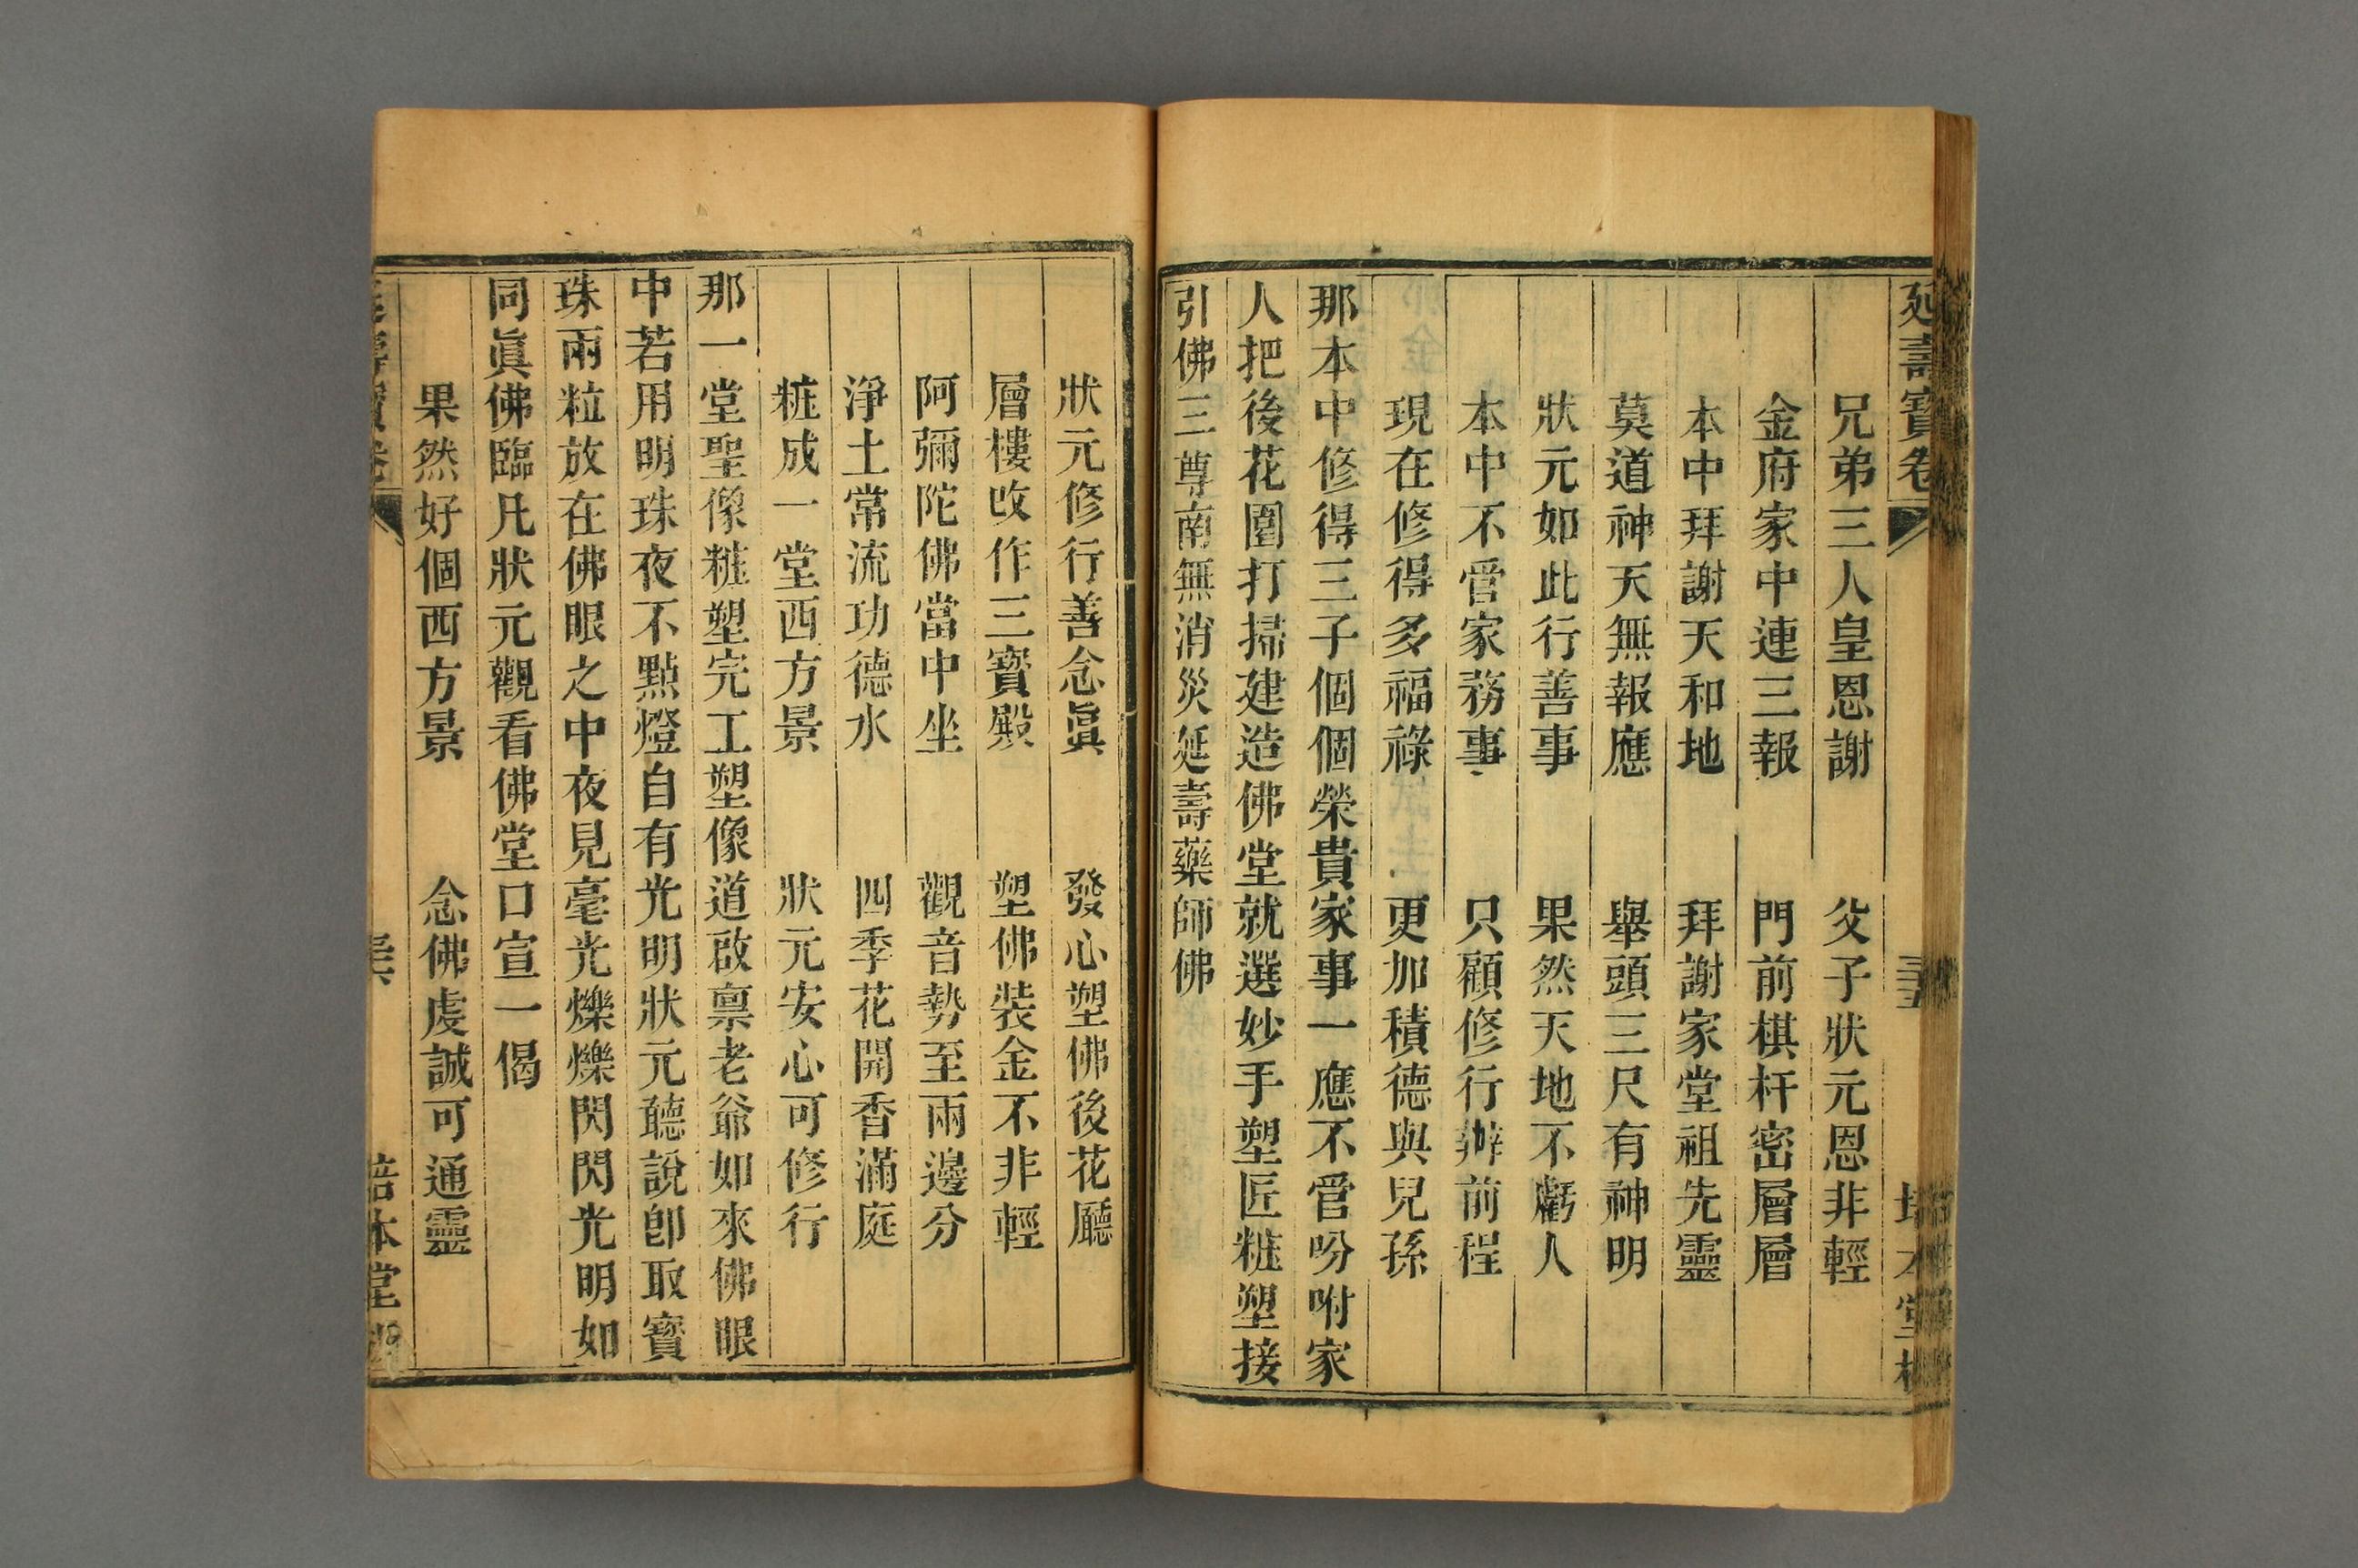 延壽寶卷
兄弟三人皇恩謝 父子狀元恩非輕
金府家中連三報 門前棋杆密層層
本中拜謝天和地 拜謝家堂祖先靈
莫道神天無報應 舉頭三尺有神明
狀元如此行善事 果然天地不虧人
本中不管家務事 只顧修行辦前程
現在修得多福祿 更加積德與兒孫
那本中修得三子個個榮貴家事一應不管吩咐家
人把後花園打掃建造佛堂就選妙手塑匠粧塑接
引佛三尊南無消災延壽藥師佛
狀元修行善念眞 發心塑佛後花廳
層樓改作三寳殿 塑佛裝金不非輕
阿彌陀佛當中坐 觀音勢至兩邊分
淨土常流功德水 四季花開香滿庭
粧成一堂西方景 狀元安心可修行
那一堂聖像粧塑完工塑像道啟禀老爺如來佛眼
中若用明珠夜不點燈自有光明狀元聽說卽取寳
珠兩粒放在佛眼之中夜見毫光爍爍閃閃光明如
同眞佛臨凡狀元觀看佛堂口宣一偈
果然好個西方景 念佛虔誠可通靈
本堂